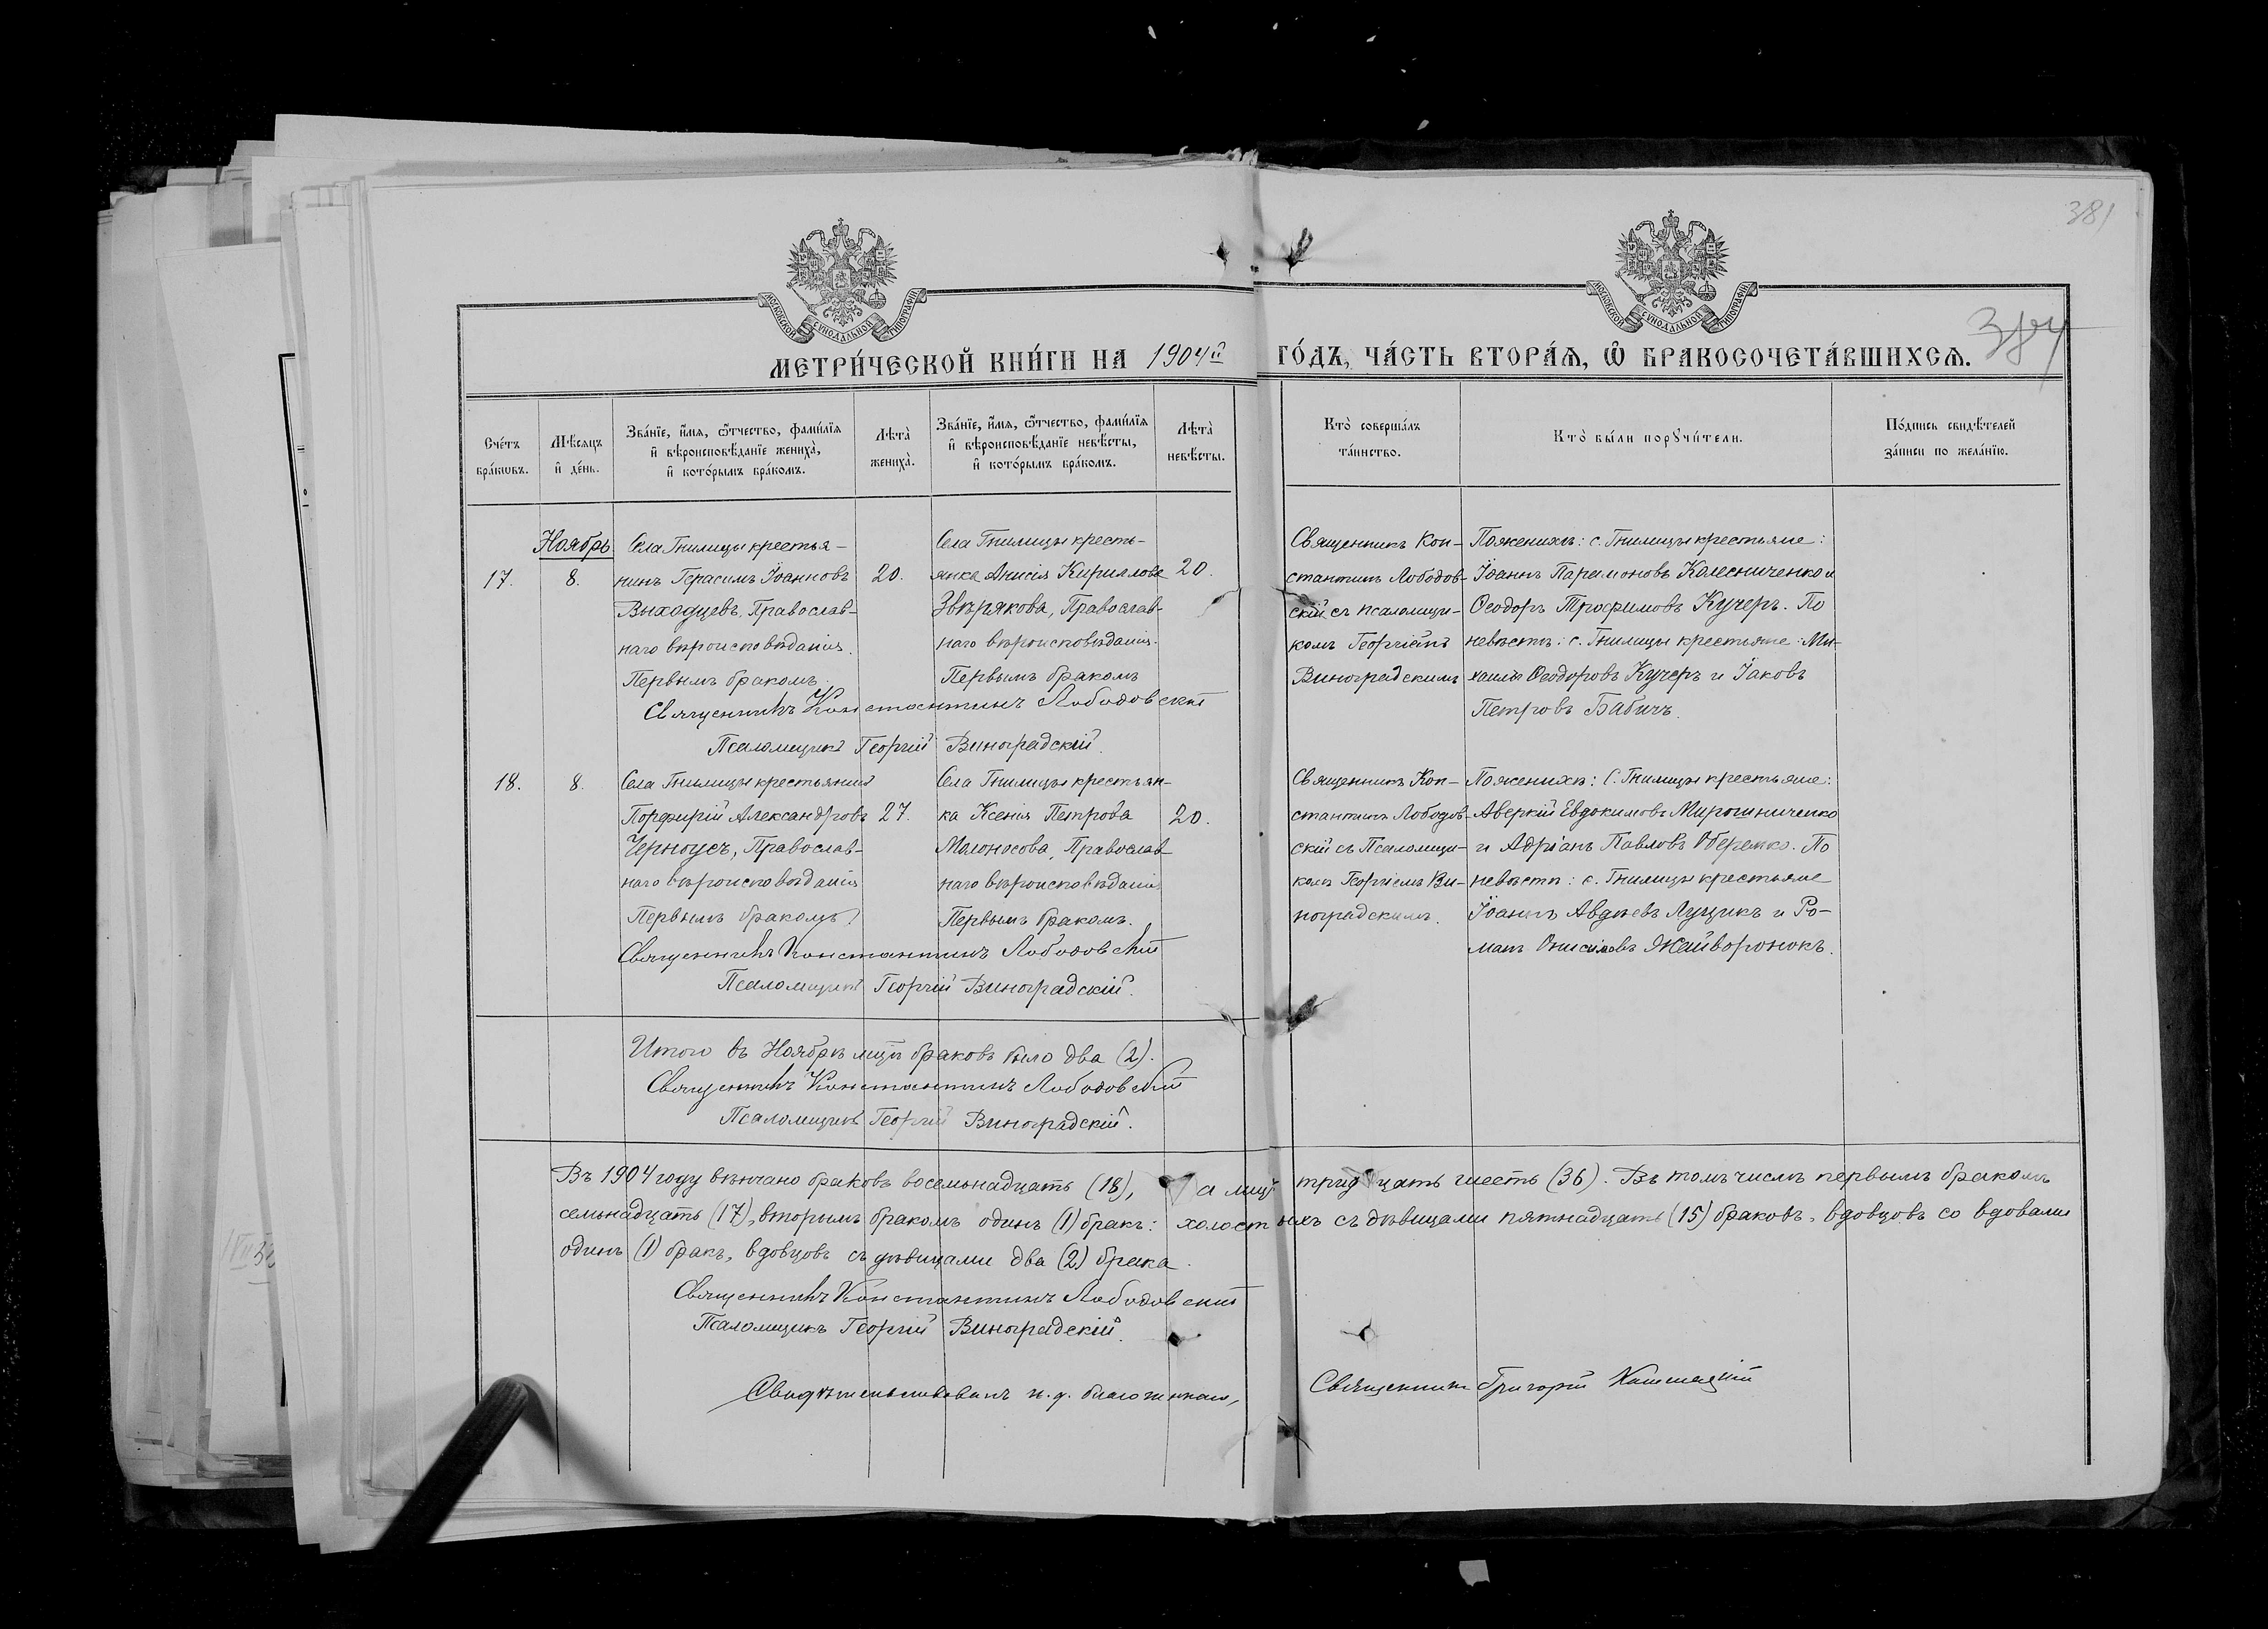 381
384
МОСКОВСКОЙ СУНОДАЛЬНОЙ ТИПОГРАФІИ
МОСКОВСКОЙ СУНОДАЛЬНОЙ ТИПОГРАФІИ
МЕТРИ́ЧЕСКОЙ КНИ́ГИ НА 1904й ГО́ДЪ, ЧА́СТЬ ВТОРА́Я, Ѿ БРАКОСОЧЕТА́ВШИХСЯ.
Сче́тъ
бра́ковъ.
Мѣ́сяцъ
и҆ де́нь.
Зва́нїе, и҆́мя, ѻ҆́тчество, фами́лїя
и҆ вѣроисповѣ́данїе жениха̀,
и҆ кото́рымъ бра́комъ.
Лѣта̀
жениха̀.
Зва́нїе, и҆́мя, ѻ҆́тчество, фами́лїя
и҆ вѣроисповѣ́данїе невѣ́сты,
и҆ кото́рымъ бра́комъ.
Лѣта̀
невѣ́сты.
Кто̀ соверша́лъ
та́инство.
Кто̀ бы́ли порꙋчи́тели.
По́дпись свидѣ́телей
за́писи по жела́нїю.
Ноябрь
17.
8.
Села Гнилицы крестья-
нинъ Герасимъ Іоанновъ
Выходцевъ, Православ-
наго вѣроисповѣданія.
Первымъ бракомъ.
20.
Села Гнилицы кресть-
янка Анисія Кириллова
Звѣрякова, Православ-
наго вѣроисповѣданія.
Первымъ бракомъ
20.
Священникъ Кон-
стантинъ Лободов-
скій съ псаломщи-
комъ Георгіемъ
Виноградскимъ
По женихѣ: с. Гнилицы крестьяне:
Іоаннъ Парамоновъ Колесниченко и
Ѳеодоръ Трофимовъ Кучеръ. По
невѣстѣ: с. Гнилицы крестьяне: Ми-
хаилъ Ѳеодоровъ Кучеръ и Іаковъ
Петровъ Бабичъ.
Священникъ Константинъ Лободовскій
Псаломщикъ Георгій Виноградскій.
18.
8.
Села Гнилицы крестьянинъ
Порфирій Александровъ
Черноусъ, Православ-
наго вѣроисповѣданія
Первымъ бракомъ.
27.
Села Гнилицы крестьян-
ка Ксенія Петрова
Молоносова, Православ-
наго вѣроисповѣданія
Первымъ бракомъ.
20.
Священникъ Кон-
стантинъ Лободов-
скій съ Псаломщи-
комъ Георгіемъ Ви-
ноградскимъ.
По женихѣ: С. Гнилицы крестьяне:
Аверкій Евдокимовъ Мирошниченко
и Адріанъ Павловъ Оберемко. По
невѣстѣ: с. Гнилицы крестьяне
Іоаннъ Авдѣевъ Луцикъ и Ро-
манъ Онисимовъ Жайворонокъ.
Священникъ Константинъ Лободовскій
Псаломщикъ Георгій Виноградскій.
Итого въ Ноябрѣ мцѣ браковъ было два (2).
Священникъ Константинъ Лободовскій
Псаломщикъ Георгій Виноградскій.
Въ 1904 году вѣнчано браковъ восемьнадцать (18), а лицъ тридцать шесть (36). Въ томъ числѣ первымъ бракомъ
семьнадцать (17), вторымъ бракомъ одинъ (1) бракъ: холостыхъ съ дѣвицами пятнадцать (15) браковъ, вдовцовъ со вдовами
одинъ (1) бракъ, вдовцовъ съ дѣвицами два (2) брака.
Священникъ Константинъ Лободовскій
Псаломщикъ Георгій Виноградскій.
Свидѣтельствовалъ и. д. благочиннаго, Священникъ Григорій